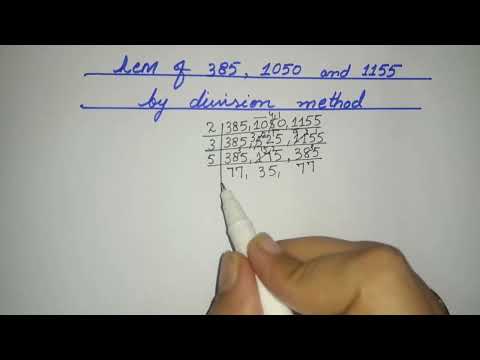 LCM of 385, 1050 and 1155
by division method
2 | 385, 1050, 1155
3 | 385, 525, 1155
5 | 385, 175, 385
77, 35, 77